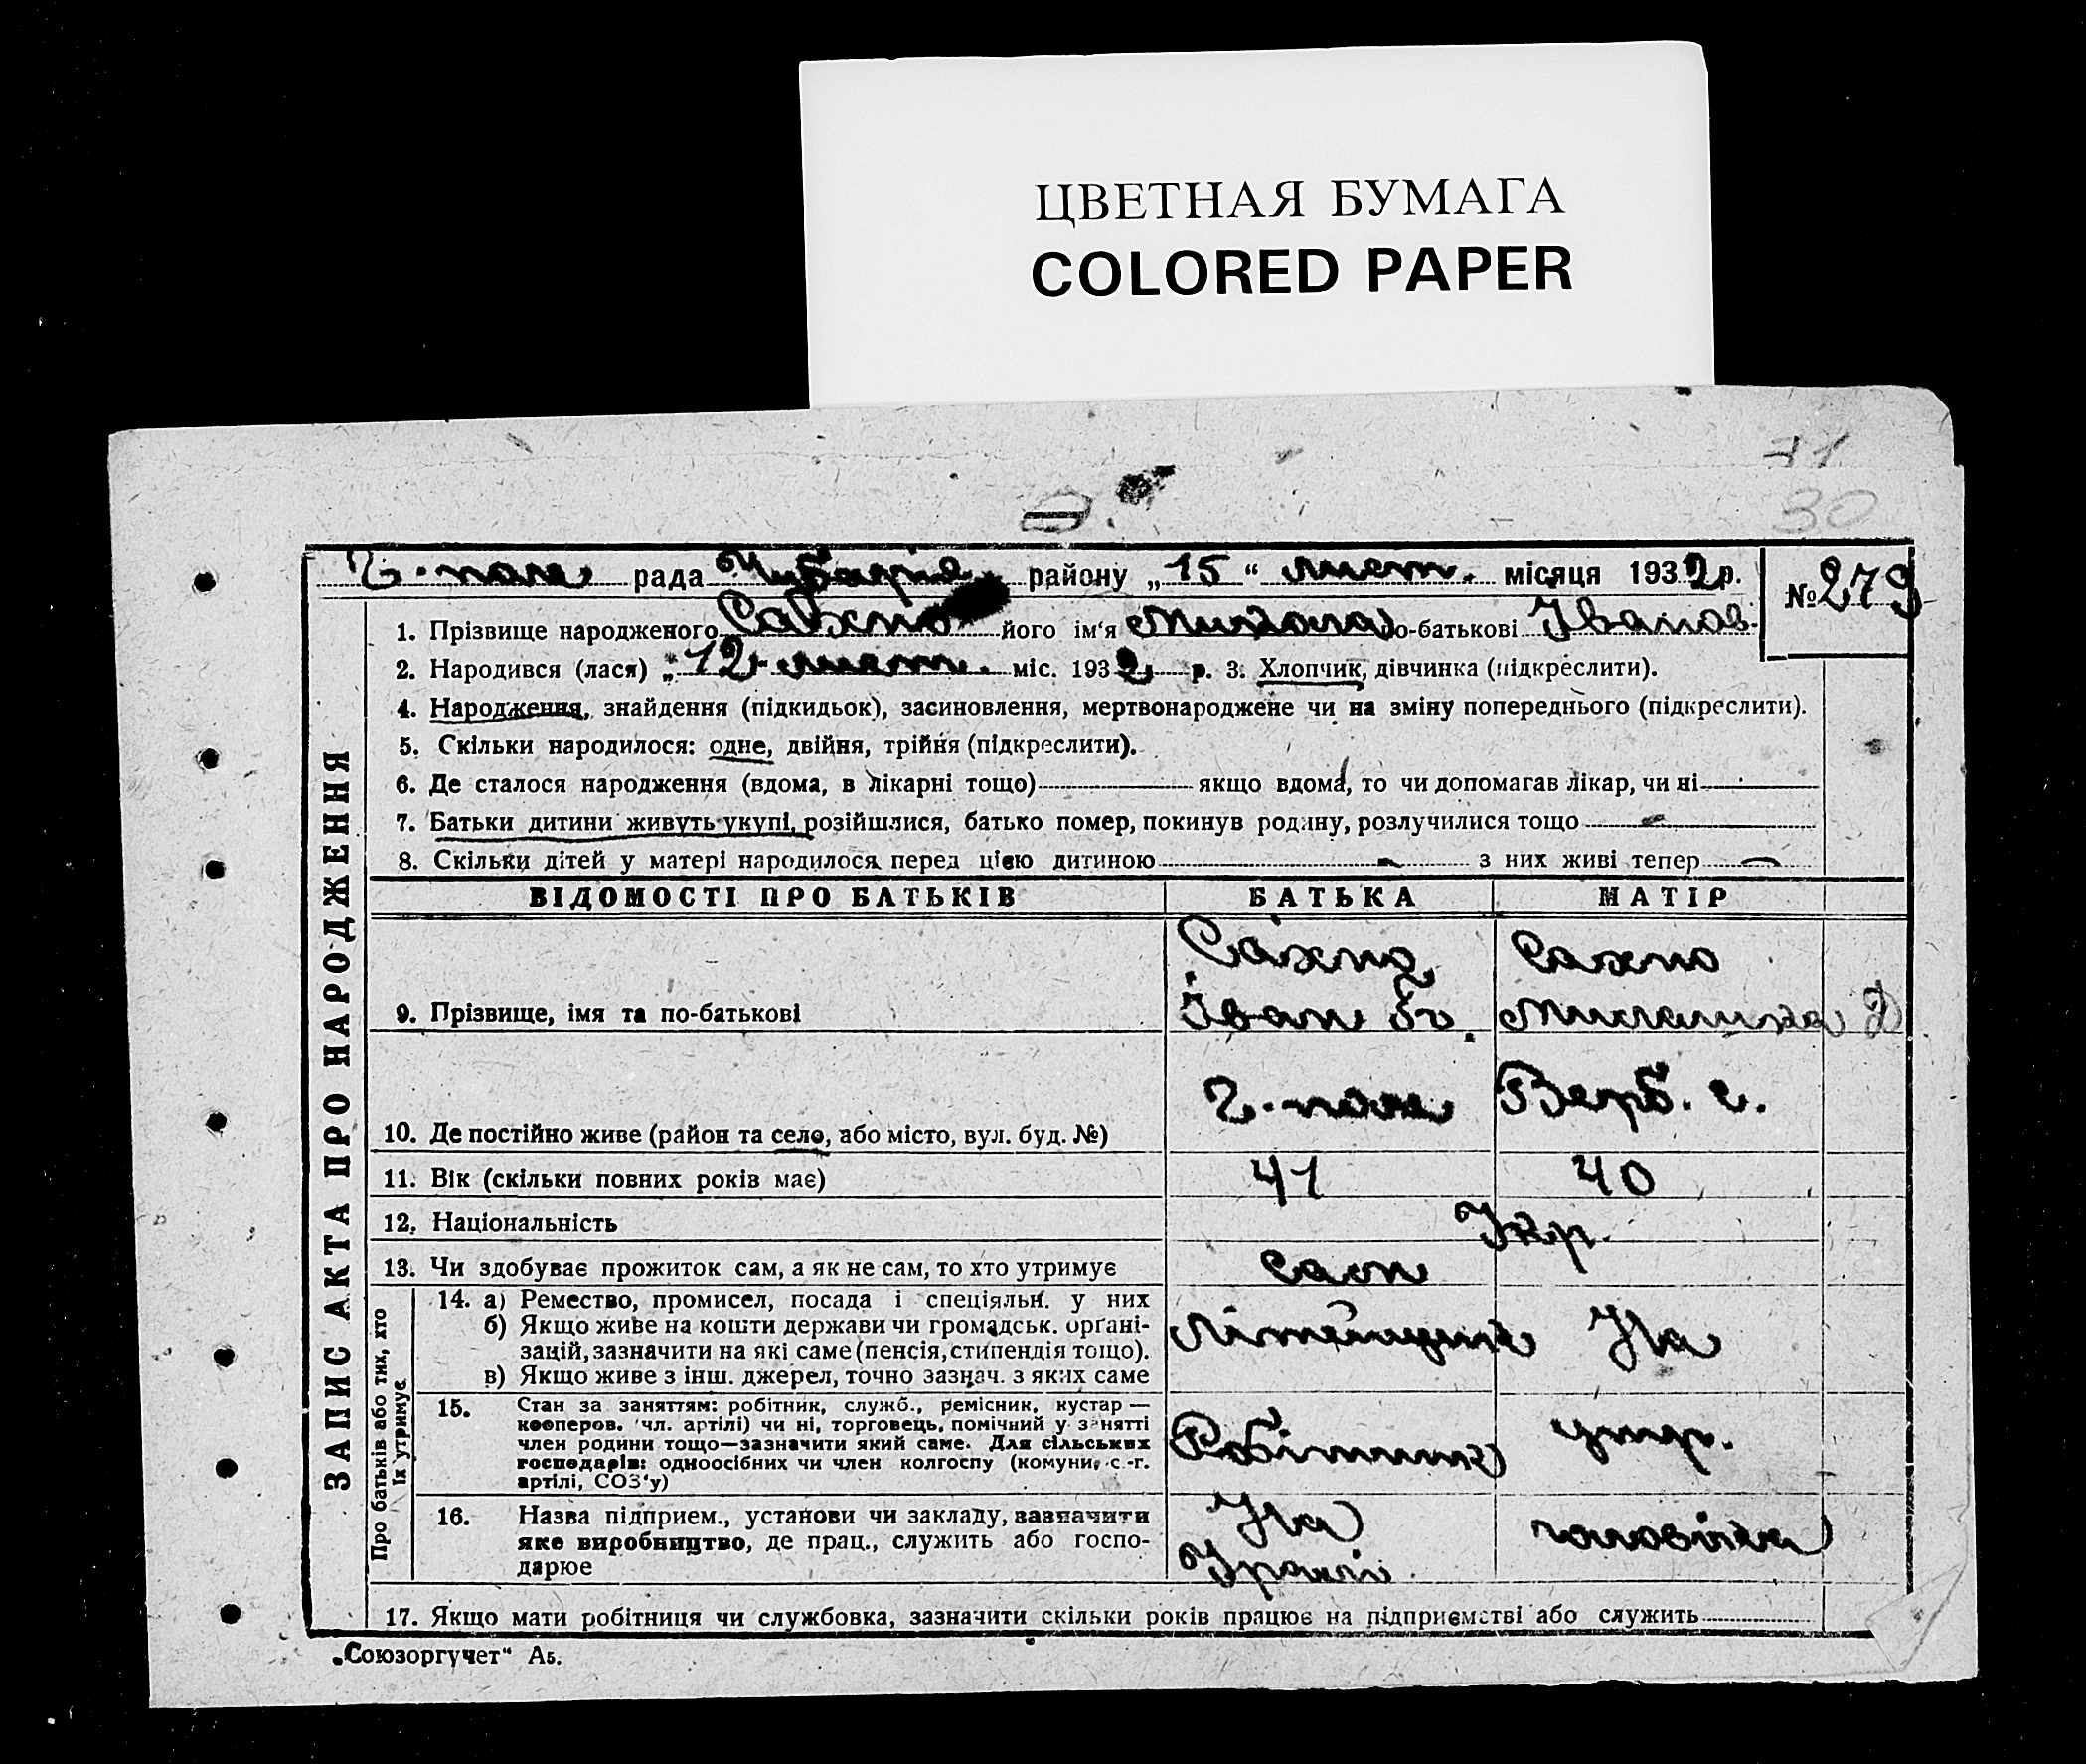 ЦВЕТНАЯ БУМАГА
COLORED PAPER
71
30
Г. поле рада района „15“ лист. місяця 1932 р. № 279
1. Прізвище народженого Сахно його ім‘я Микола по-батькові Іванов.
2. Народився (лася) „12 лист. міс. 1932 р. 3. Хлопчик, дівчинка (підкреслити).
4. Народження, знайдення (підкидьок), засиновлення, мертвонароджене чи на зміну попереднього (підкреслити).
5. Скільки народилося: одне, двійня, трійня (підкреслити).
6. Де сталося народження (вдома, в лікарні тощо) якщо вдома, то чи допомагав лікар, чи ні
7. Батьки дитини живуть укупі, розійшлися, батько помер, покинув родину, розлучилися тощо
8. Скільки дітей у матері народилося перед цією дитиною з них живі тепер
ЗАПИС АКТА ПРО НАРОДЖЕННЯ
ВІДОМОСТІ ПРО БАТЬКІВ БАТЬКА МАТІР
Сахно Сахно
9. Прізвище, імя та по-батькові Іван
Г. поле Верб. г.
10. Де постійно живе (район та село, або місто, вул. буд. №)
11. Вік (скільки повних років має) 41 40
12. Національність Укр.
13. Чи здобуває прожиток сам, а як не сам, то хто утримує сам
Про батьків або тих, хто
їх утримує
14. а) Ремество, промисел, посада і спеціяльн. у них
б) Якщо живе на кошти держави чи громадськ. орґані-
зацій, зазначити на які саме (пенсія, стипендія тощо). На
в) Якщо живе з інш. джерел, точно зазнач. з яких саме
15. Стан за заняттям: робітник, служб., ремісник, кустар —
кооперов. чл. артілі) чи ні, торговець, помічний у занятті
член родини тощо—зазначити який саме. Для сільських
господарів: одноосібних чи член колгоспу (комуни, с.-г.
артілі, СОЗ‘у) Робітник утр.
16. Назва підприєм., установи чи закладу, зазначити
яке виробництво, де прац., служить або госпо-
дарюе На чоловіка
17. Якщо мати робітниця чи службовка, зазначити скільки років працює на підприємстві або служить
„Союзоргучет“ А5.